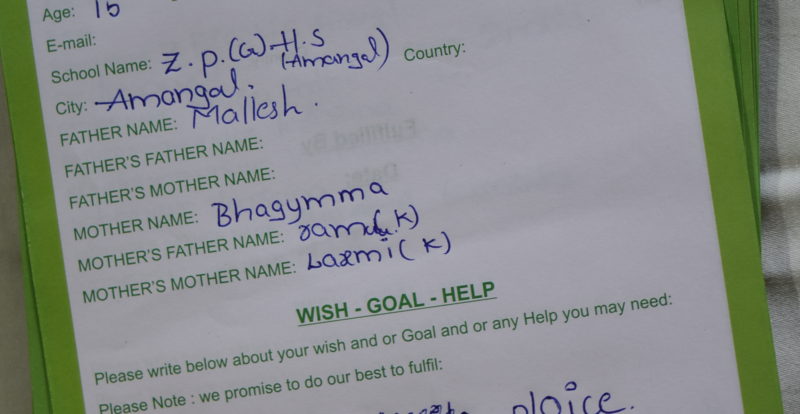 Age: 15
E-mail:
School Name: Z.P.(G).H.S (Amangal) Country:
City: Amangal.
FATHER NAME: Mallesh.
FATHER'S FATHER NAME:
FATHER'S MOTHER NAME:
MOTHER NAME: Bhagymma
MOTHER'S FATHER NAME: ramulu(K)
MOTHER'S MOTHER NAME: Laxmi(K)
WISH - GOAL - HELP
Please write below about your wish and or Goal and or any Help you may need:
Please Note : we promise to do our best to fulfil:
ploice.